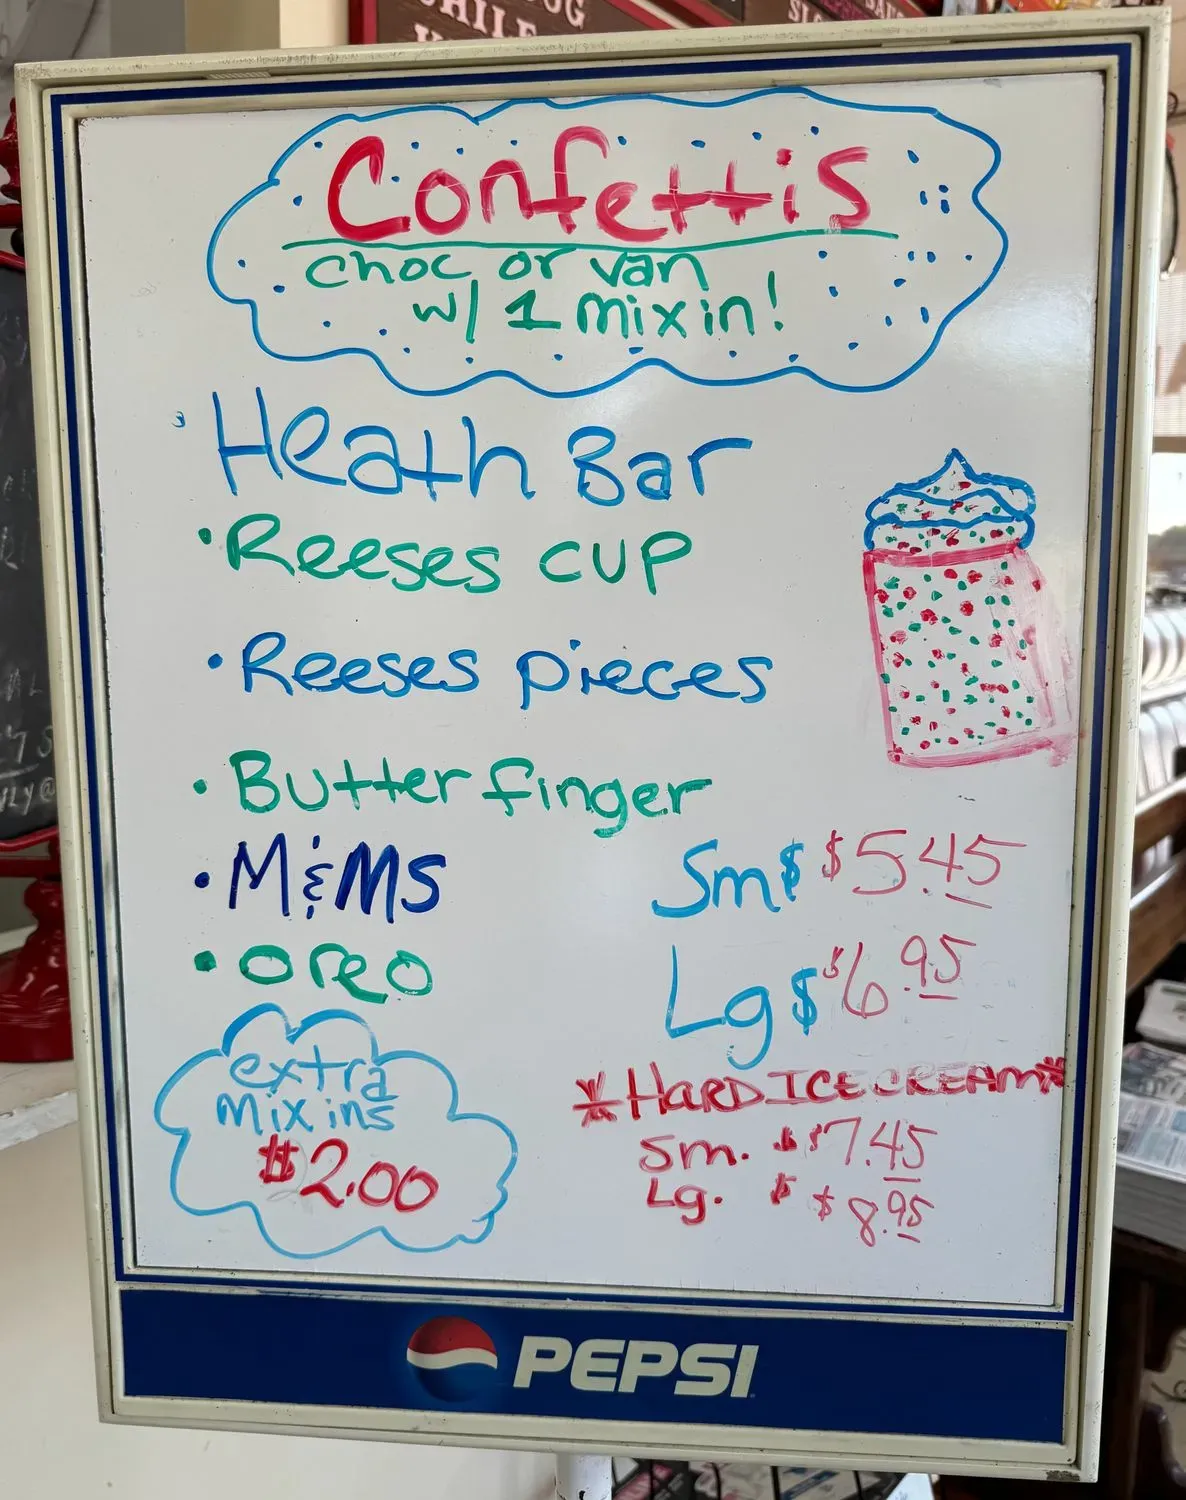 Confettis
choc or van
w/ 1 mix in!
• Heath Bar
• Reeses cup
• Reeses pieces
• Butterfinger
• M&Ms
• oreo
Sm $ $5.45
Lg $ $6.95
extra
mix ins
$2.00
*HARD ICE CREAM*
Sm. $ $7.45
Lg. $ $8.95
PEPSI